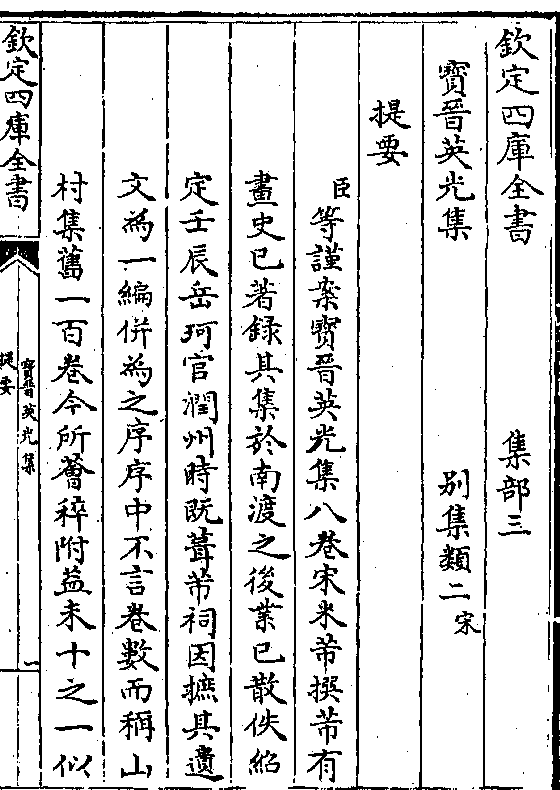 欽定四庫全書　集部三
寶晉英光集　別集類二宋
提要
臣等謹案寶晉英光集八卷宋米芾撰芾有
畫史已著録其集於南渡之後業已散佚紹
定壬辰岳珂官潤州時既葺芾祠因摭其遺
文為一編併為之序序中不言卷數而稱山
村集舊一百卷今所薈稡附益未十之一似
欽定四庫全書
寶晉英光集
提要
一